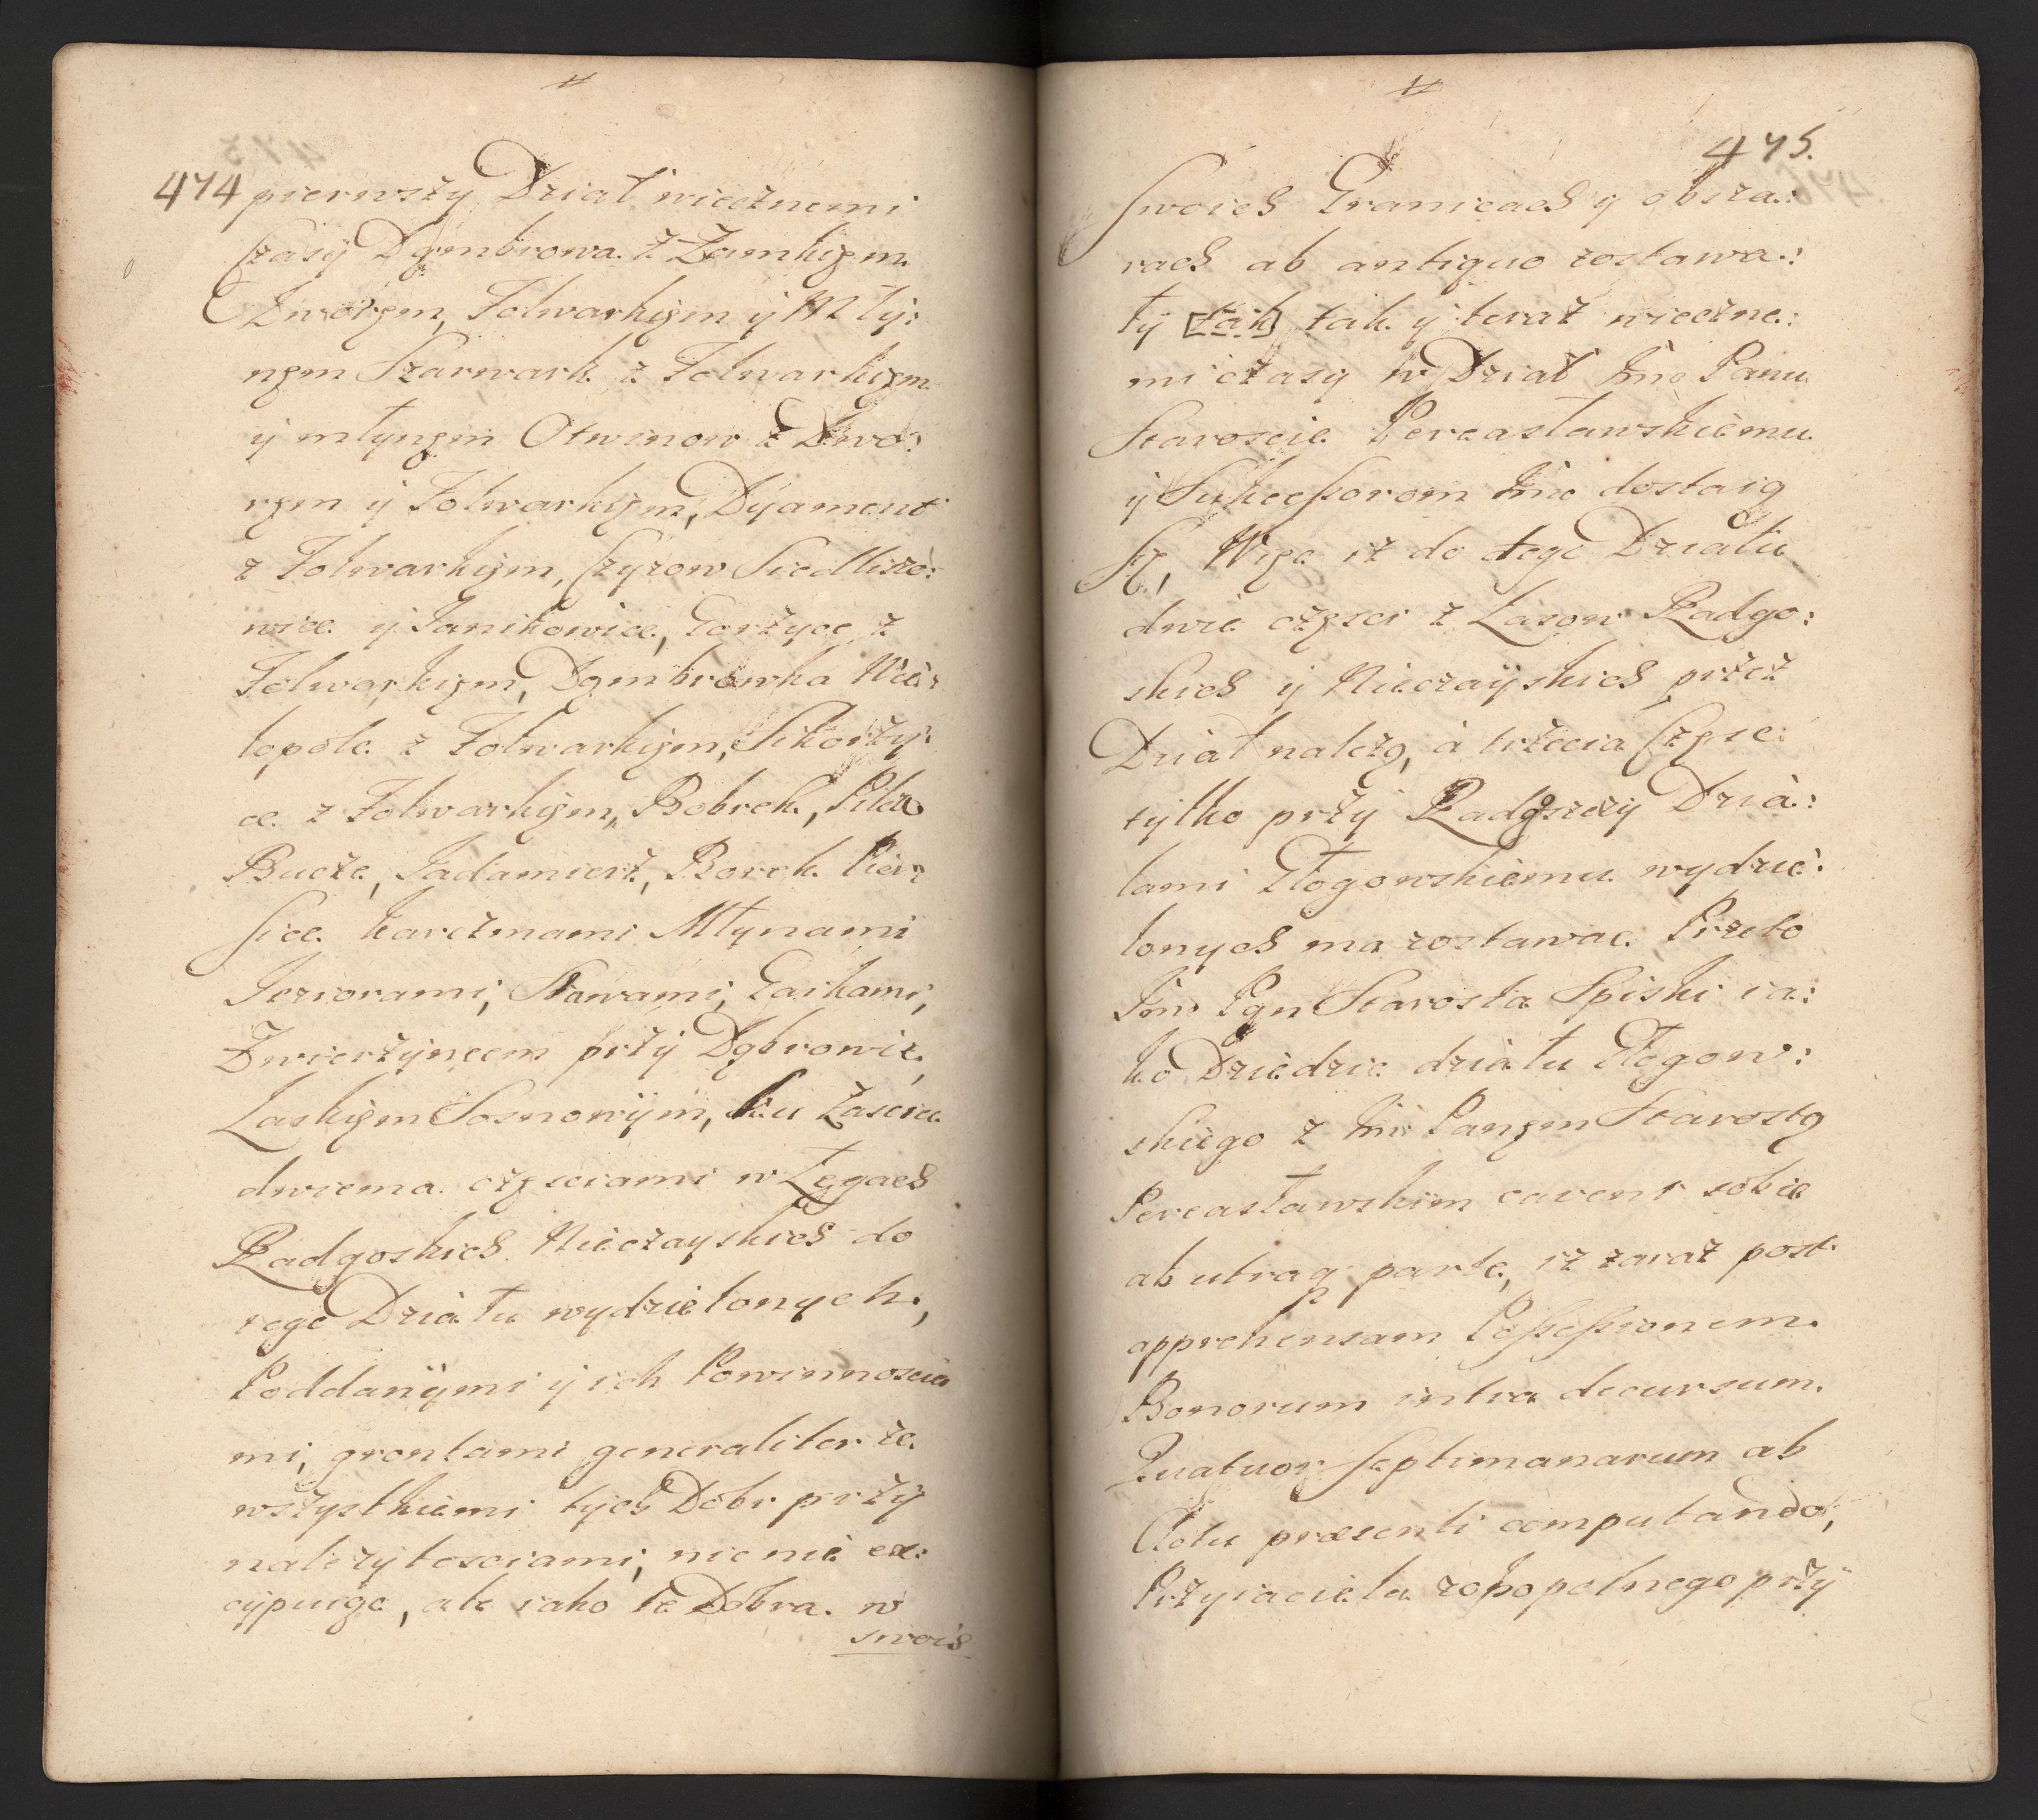 474
pierwszy Dział wiecznemi
Czasy Dąmbrowa. z Zamkięm.
Dworęm, Folwarkięm ÿ Mły:
nęm Szarwark z Folwarkięm
ÿ młynęm Otwinow z Dwo:
ręm ÿ Folwarkięm, Dÿament
z Folwarkięm, Czyzow Siedliszo:
wice ÿ Janikowice, Gorzyce z
Folwarkięm, Dąmbrowka Wie:
lopole z Folwarkięm, Sikorzy:
ce z Folwarkięm, Bobrek, Pilcza
Bucze, Jadamierz, Borek Pier:
sice Karczmami Młynami
Jeziorami, Stawami, Gaikami,
Zwierzÿncem przÿ Dąbrowie,
Laskięm Sosnowÿm, ku Zasciu
dwiema częsciami w Łęgach
Radgoskich Nieczayskich do
tego Działu wydzielonych,
Poddanÿmi ÿ ich Powinnoscia
mi, grontami generaliter ze
wszystkiemi tych Dobr przÿ
nalezÿtosciami, nic nie ex:
cÿpuiąc, ale iako te Dobra w
swoich
475.
swoich Granicach y obsza:
rach ab antiquo zostawa:
łÿ [tak] tak ÿ teraz wieczne:
mi czasy w Dział Jmć Panu
Staroscie Pereasławskiemu
ÿ Sukcessorom Jmć dostaią
Się, Więc iz do tego Działu
dwie częsci z Lasow Radgo:
skich ÿ Nieczaÿskich przez
Dział nalezą, à trzecia Częsc
tylko przÿ Radgszczÿ Dzia:
łami Głogowskiemu wydzie:
lonych ma zostawac. Przeto
Jmć Pan Starosta Spiski ia:
ko Dziedzic działu Głogow:
skiego z Jmć Panęm Starostą
Pereasławskim cavent sobie
ab utraq parte, iz zaraz post
apprehensam Possessionem
Bonorum intra decursum
Quatuor Septimanarum ab
Actu præsenti computando,
Przyiaciela zobopolnego przÿ